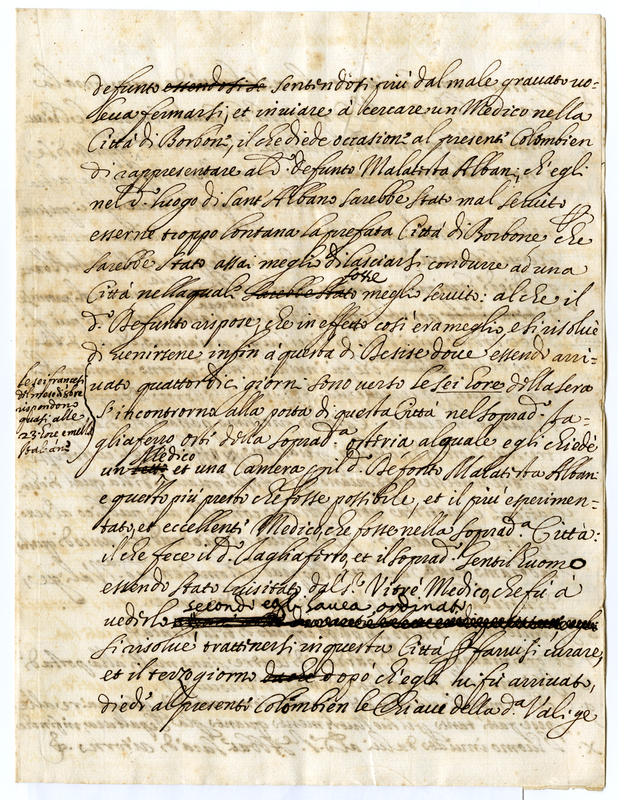 defunto essendosi se sentendosi più dal male gravato vo=
leva fermarsi, et inviare à cercare un Medico nella
Città di Borbone, il che diede occasione al presente Colombien
di rappresentare al d.º defunto Malattita Albani, ch'egli
nel d.º luogo di Sant'Albano sarebbe stato mal servito
esserne troppo lontana la prefata Città di Borbone che
sarebbe stato assai meglio di lasciarsi condurre ad una
fosse
Città nella quale sarebbe stato meglio servito: al che il
d.º Defunto rispose, che in effetto così era meglio, e si risolve
di venirsene infin a questa di dove essendo arri=
vato quattordici giorni sono verso le sei hore della sera
s'incontrorno alla porta di questa Città nel soprad.º Ta=
gliaferro oste della soprad.ª ostria al quale egli chiede
Medico
un letto et una Camera, il d.º Defonto Malatista Albani
e questo più presto che fosse possibile, et il più esperimen=
tato, et eccellente Medico, che fosse nella soprad.ª Città:
il che fece il d.º Tagliaferro, et il soprad.º Gentil'uomo
essendo stato visitato dal s.r Medico, che fù à
secondo egli haveva ordinato
vederlo
si risolve trattenersi in questa Città farsi curare,
et il terzo giorno dopo ch'egli vi fù arrivato,
diede al presente Colombien le Chiavi della d.ª Valige
le sei francesi
rispondono
quasi alle
23 hore e mezza
Italiane